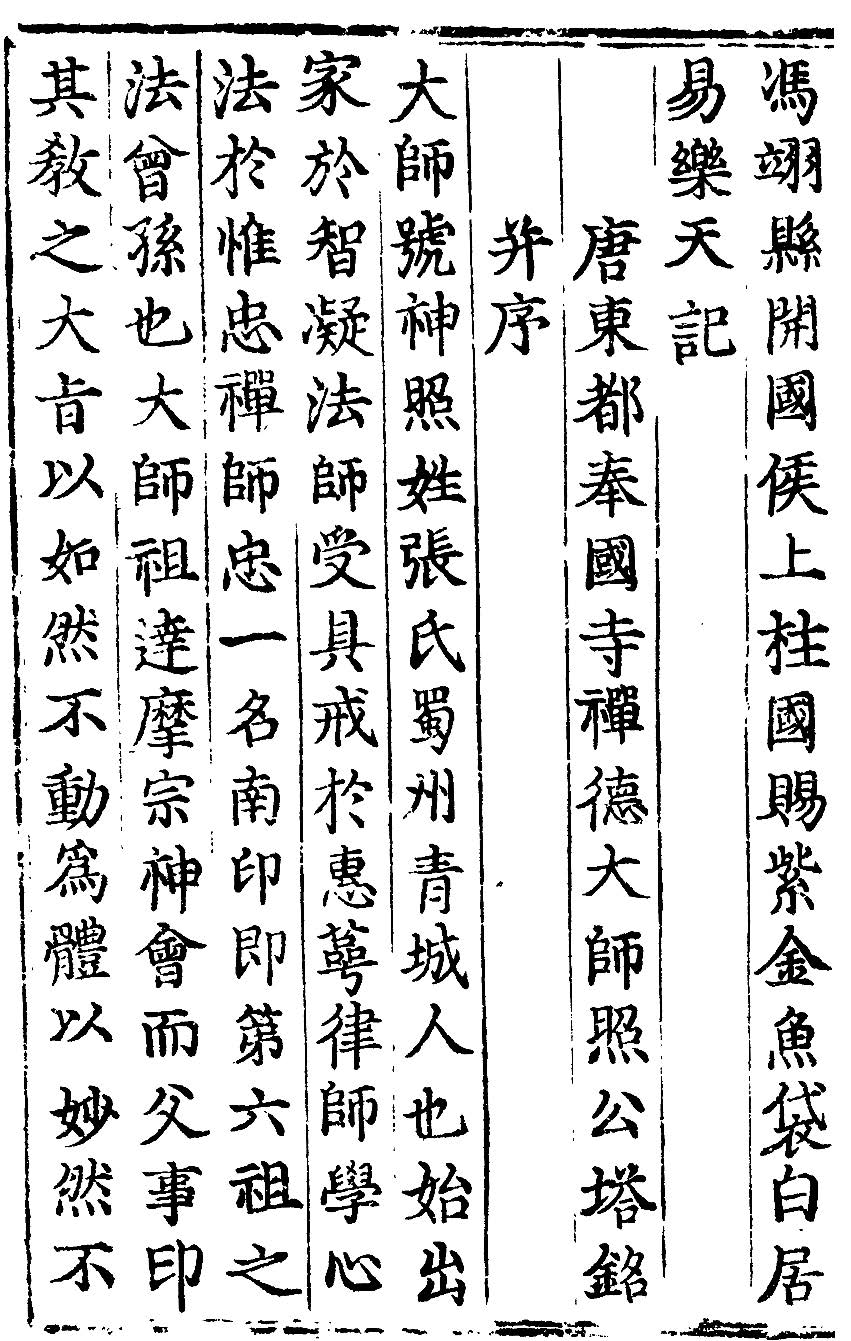 馮翊縣開國侯上柱國賜紫金魚袋白居
易樂天記
唐東都奉國寺禪德大師照公塔銘
并序
大師號神照姓張氏蜀州青城人也始出
家於智凝法師受具戒於惠萼律師學心
法於惟忠禪師忠一名南印即第六祖之
法曾孫也大師祖達摩宗神會而父事印
其教之大旨以如然不動為體以妙然不